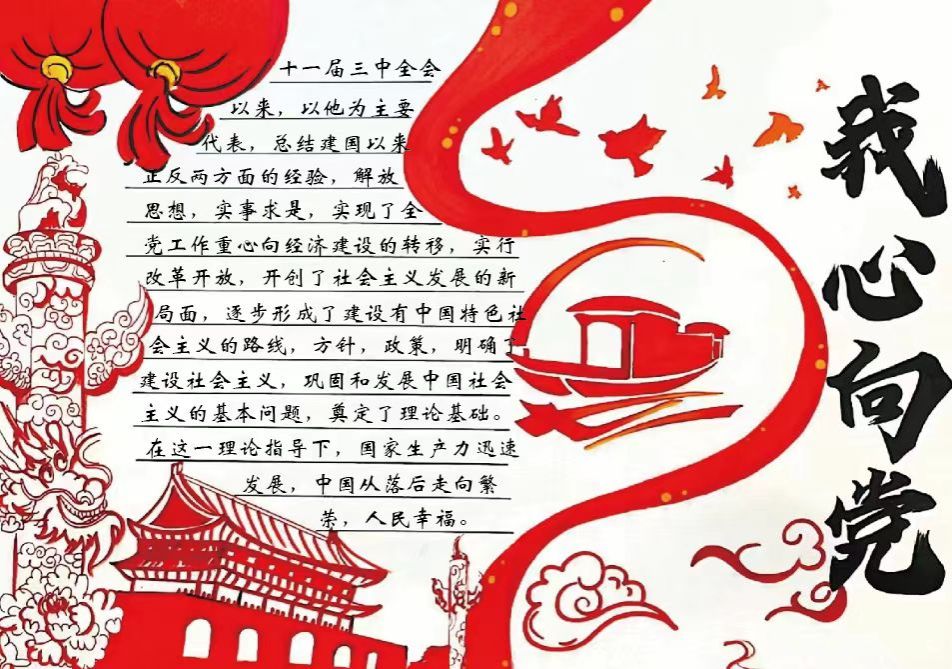 十一届三中全会
以来，以他为主要
代表，总结建国以来
正反两方面的经验，解放
思想，实事求是，实现了全
党工作重心向经济建设的转移，实行
改革开放，开创了社会主义发展的新
局面，逐步形成了建设有中国特色社
会主义的路线，方针，政策，明确了
建设社会主义，巩固和发展中国社会
主义的基本问题，奠定了理论基础。
在这一理论指导下，国家生产力迅速
发展，中国从落后走向繁
荣，人民幸福。
我心向党